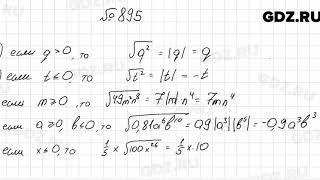 GDZ.RU
№895
) если q>0, то √q² = |q| = q
) если t≤0, то √t² = |t| = -t
если m≥0, то √49m²n⁸ = 7|m|n⁴ = 7mn⁴
если a≥0, b≤0, то √0,81a⁶b¹⁰ = 0,9|a³||b⁵| = -0,9a³b³
если x≤0, то ⅕x√100x²⁶ = ⅕x·10
GDZ.RU